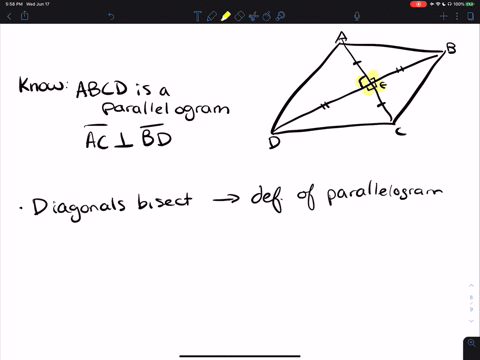 5:58 PM Wed Jun 17
100%
A
B
Know: ABCD is a
parallelogram
E
AC ⊥ BD
C
D
· Diagonals bisect → def. of parallelogram